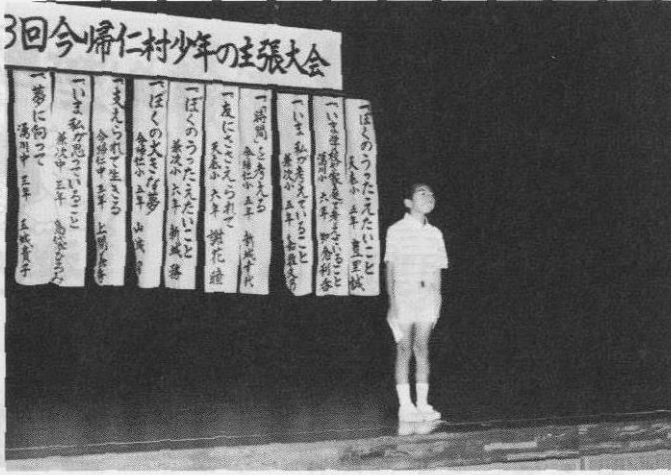 3回今帰仁村少年の主張大会
一ぼくのうったえたいこと
天底小 五年
一いま学校や家で考えていること
湧川小 六年
一いま私が考えていること
兼次小 五年
一「時間」を考える
今帰仁小 五年 新城
一友にささえられて
天底小 六年 謝花 瞳
一ぼくのうったえたいこと
兼次小 六年 新城
一ぼくの大きな夢
今帰仁小 五年
一支えられて生きる
今帰仁中 三年 上間
一いま私が思っていること
兼次中 三年 島袋
一夢に向って
湧川中 三年 玉城貴子